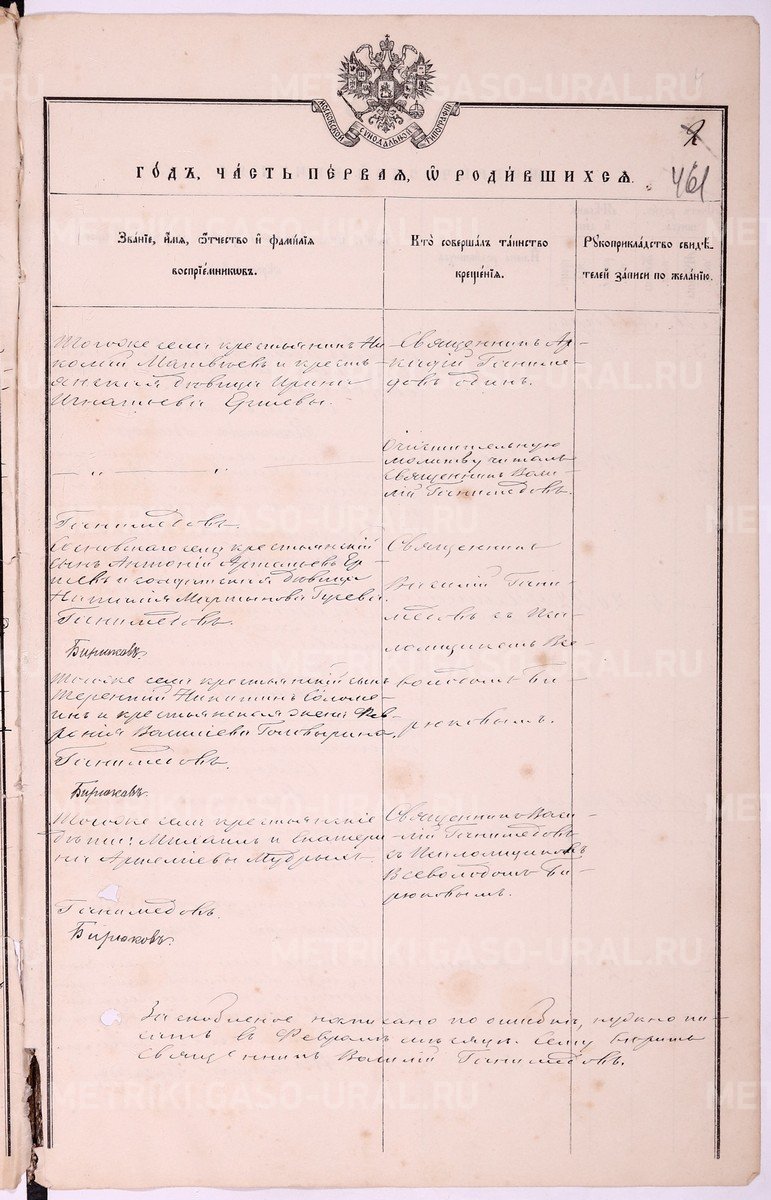 МОСКОВСКОЙ СУНОДАЛЬНОЙ ТИПОГРАФІИ
461
ГОДЪ, ЧАСТЬ ПЕРВАЯ, Ѿ РОДИВШИХСЯ.
Званіе, имя, ѻтчество и фамилія
воспріемникѡвъ.
Кто совершалъ таинство
крещенія.
Рукоприкладство свидѣ-
телей записи по желанію.
Тогоже села крестьянинъ Ни-
колай Матвѣевъ и кресть-
янская дѣвица Ирина
Игнатьева Ершевы.
Священникъ Ар-
кадій Ганиме-
довъ одинъ.
— „ — „
Очистительную
молитву читалъ
Священникъ Васи-
лій Ганимедовъ.
Ганимедовъ.
Сосновскаго села крестьянскій
сынъ Антоній Артемьевъ Ер-
шевъ и солдатская дѣвица
Наталія Мартынова Гусева.
Ганимедовъ.
Бирюковъ.
Священникъ
Василій Гани-
медовъ съ Пса-
ломщикомъ Все-
володомъ Би-
рюковымъ.
Тогоже села крестьянскій сынъ
Терентій Никитинъ Соломе-
инъ и крестьянская жена Фев-
ронія Васильева Головырина.
Ганимедовъ.
Бирюковъ.
Тогоже села крестьянскіе
дѣти: Михаилъ и Екатери-
на Артеміевы Мудрыхъ.
Священникъ Васи-
лій Ганимедовъ
съ Псаломщикомъ
Всеволодомъ Би-
рюковымъ.
Ганимедовъ.
Бирюковъ.
За скобленое написано по ошибкѣ, нужно пи-
сать въ Февралѣ мѣсяцѣ. сему вѣрить
Священникъ Василій Ганимедовъ.
METRIKI.GASO-URAL.RU